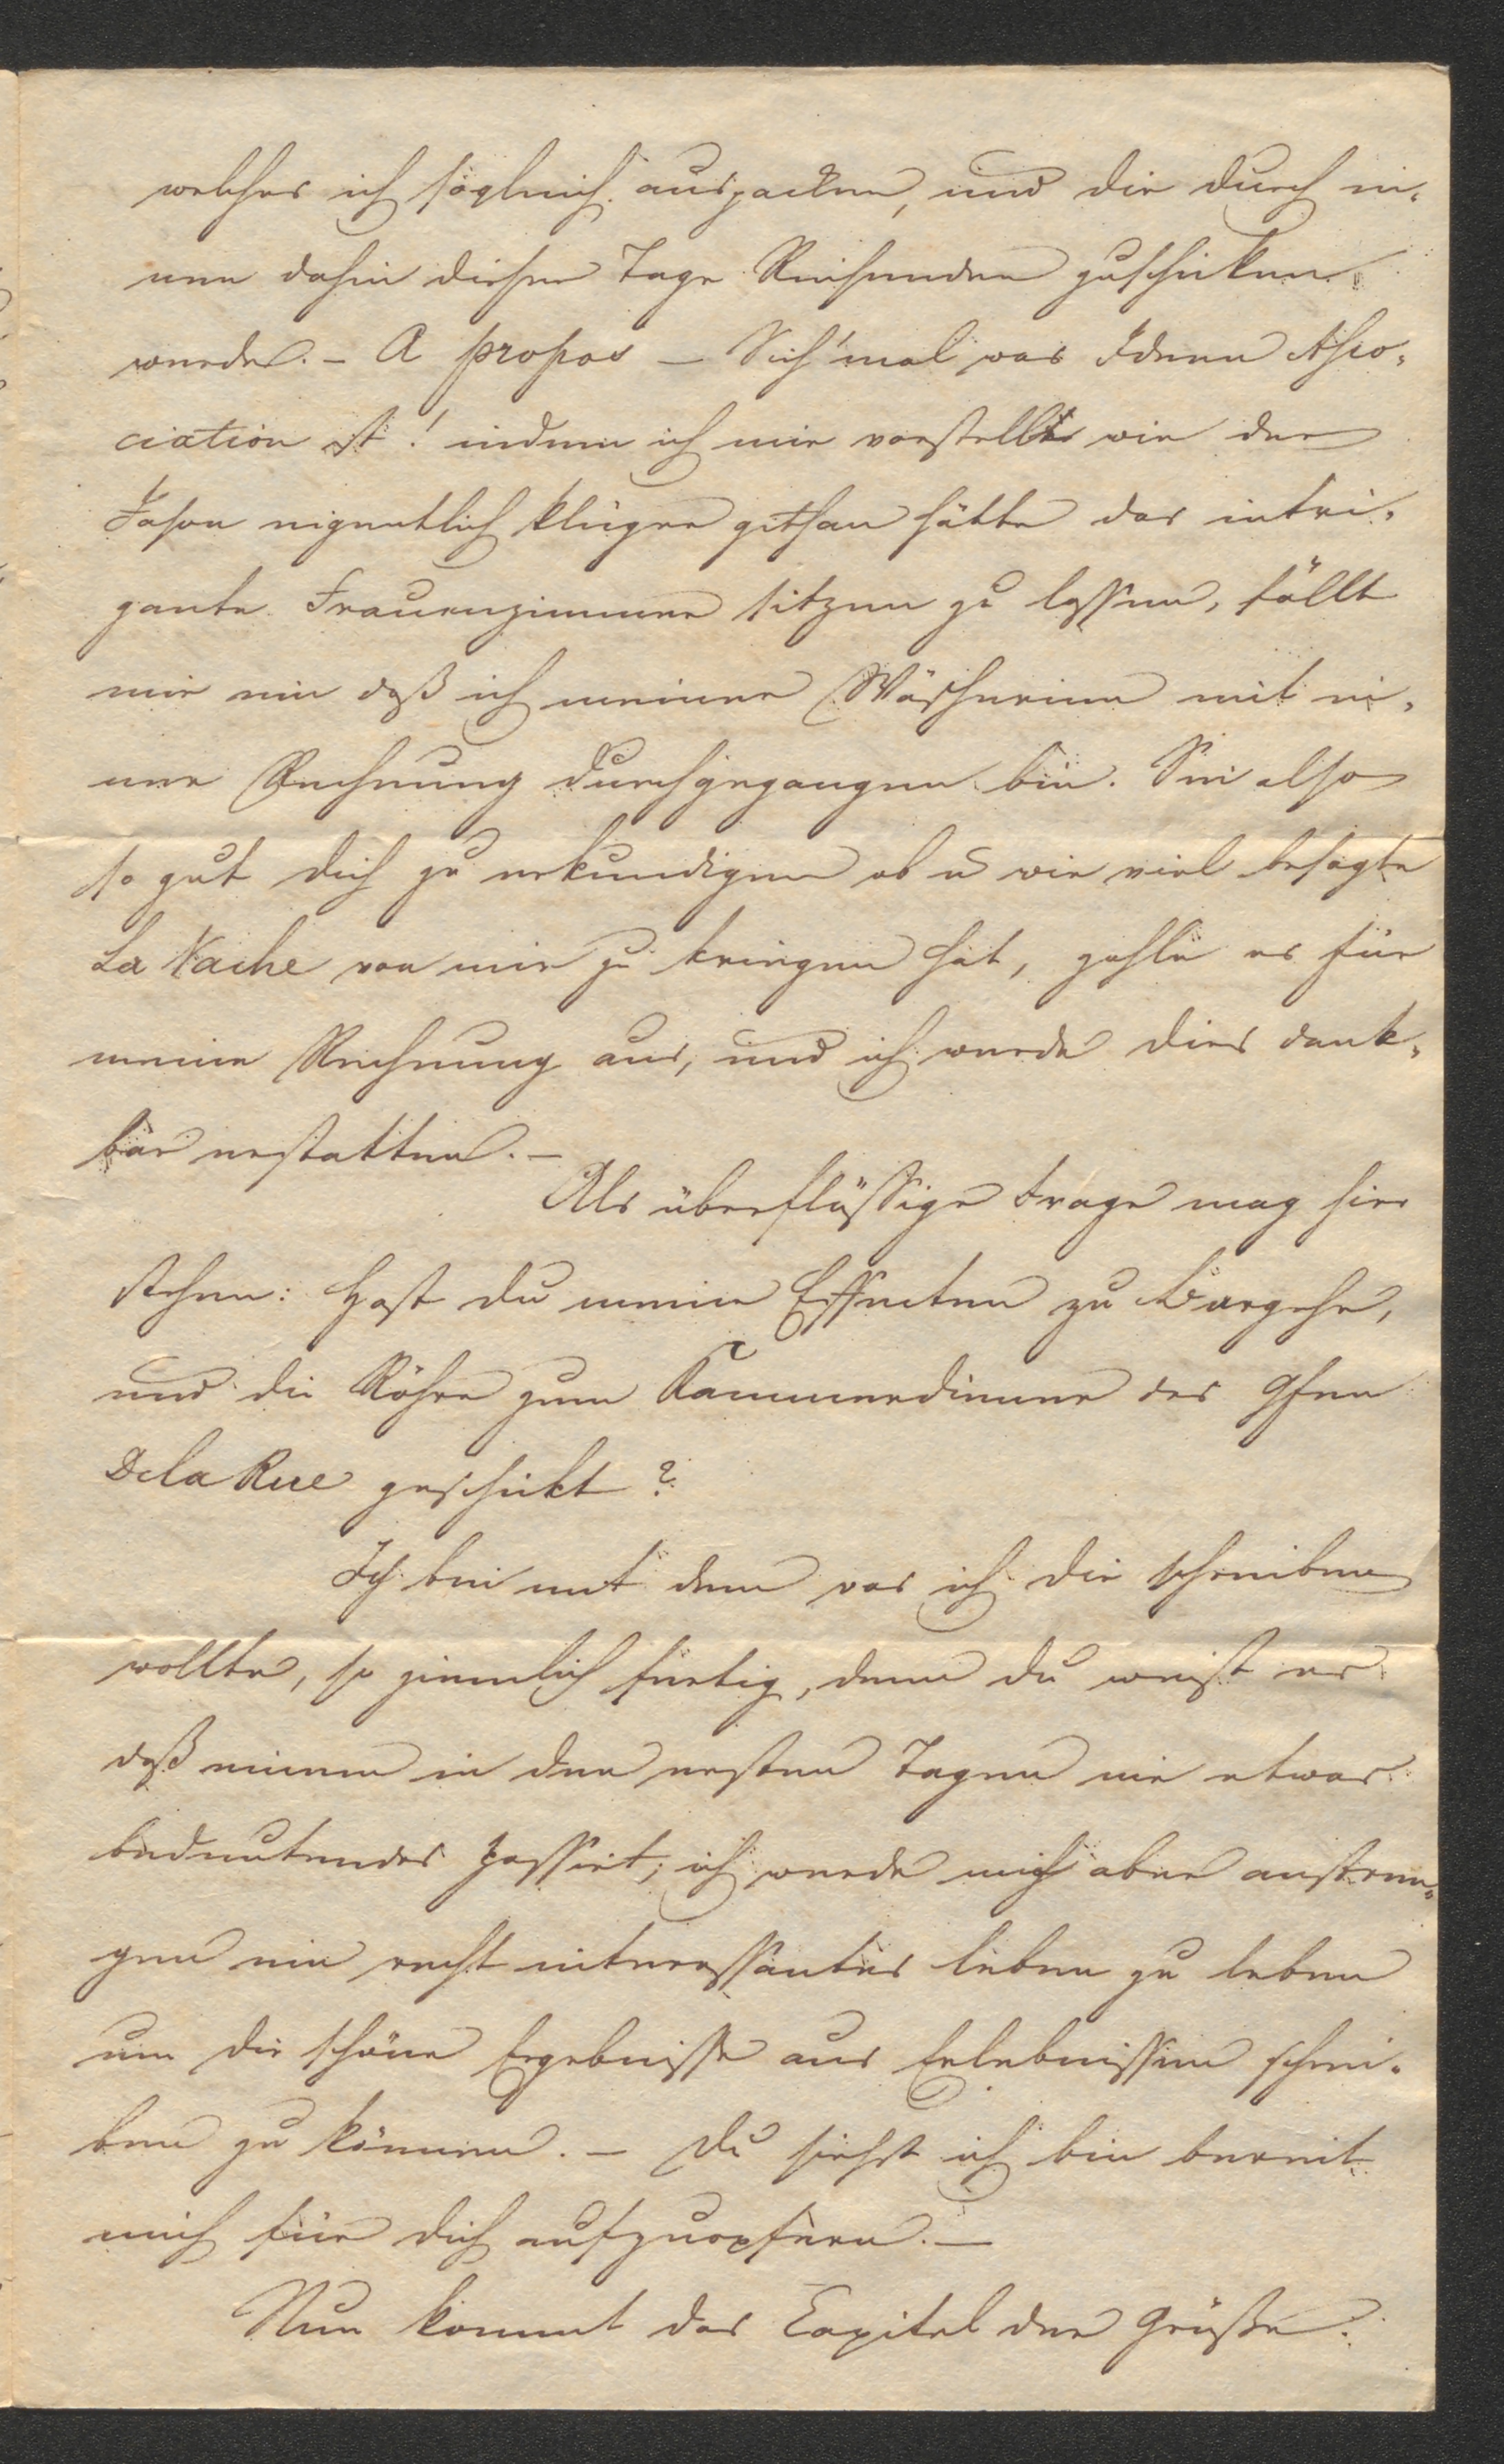 welches ich sogleich auspacken, und dir durch ei„
nen dahin dieser Tage Reisenden zuschicken
werde. – A propos – Sieh' mal was Ideen Asso„
ciation ist! indem ich mir vorstellte wie der
Jason eigentlich klüger gethan hätte das intri„
gante Frauenzimmer sitzen zu lassen, fällt
mir ein daß ich meiner Wäscherinn mit ei„
ner Rechnung durchgegangen bin. Sei also
so gut dich zu erkundigen ob u wie viel besagte
La Vache von mir zu kriegen hat, zahle es für
meine Rechnung aus, und ich werde dies dank„
bar erstatten. –
Als überflüssige Frage mag hier
stehen: Hast du meine Effecten zu Borgehr,
und die Röhre zum Kammerdiener des Gfen
Dela Rue geschickt?
Ich bin mit dem was ich dir schreiben
wollte, so ziemlich fertig, denn du weist es
daß einem in den ersten Tagen nie etwas
bedeutendes passirt; ich werde mich aber anstren„
gen ein recht interessantes leben zu leben
um dir schöne Ergebnisse aus Erlebnissen schrei„
ben zu können. – Du siehst ich bin bereit
mich für dich aufzuopfern. –
Nun kommt das Capitel der Grüße.